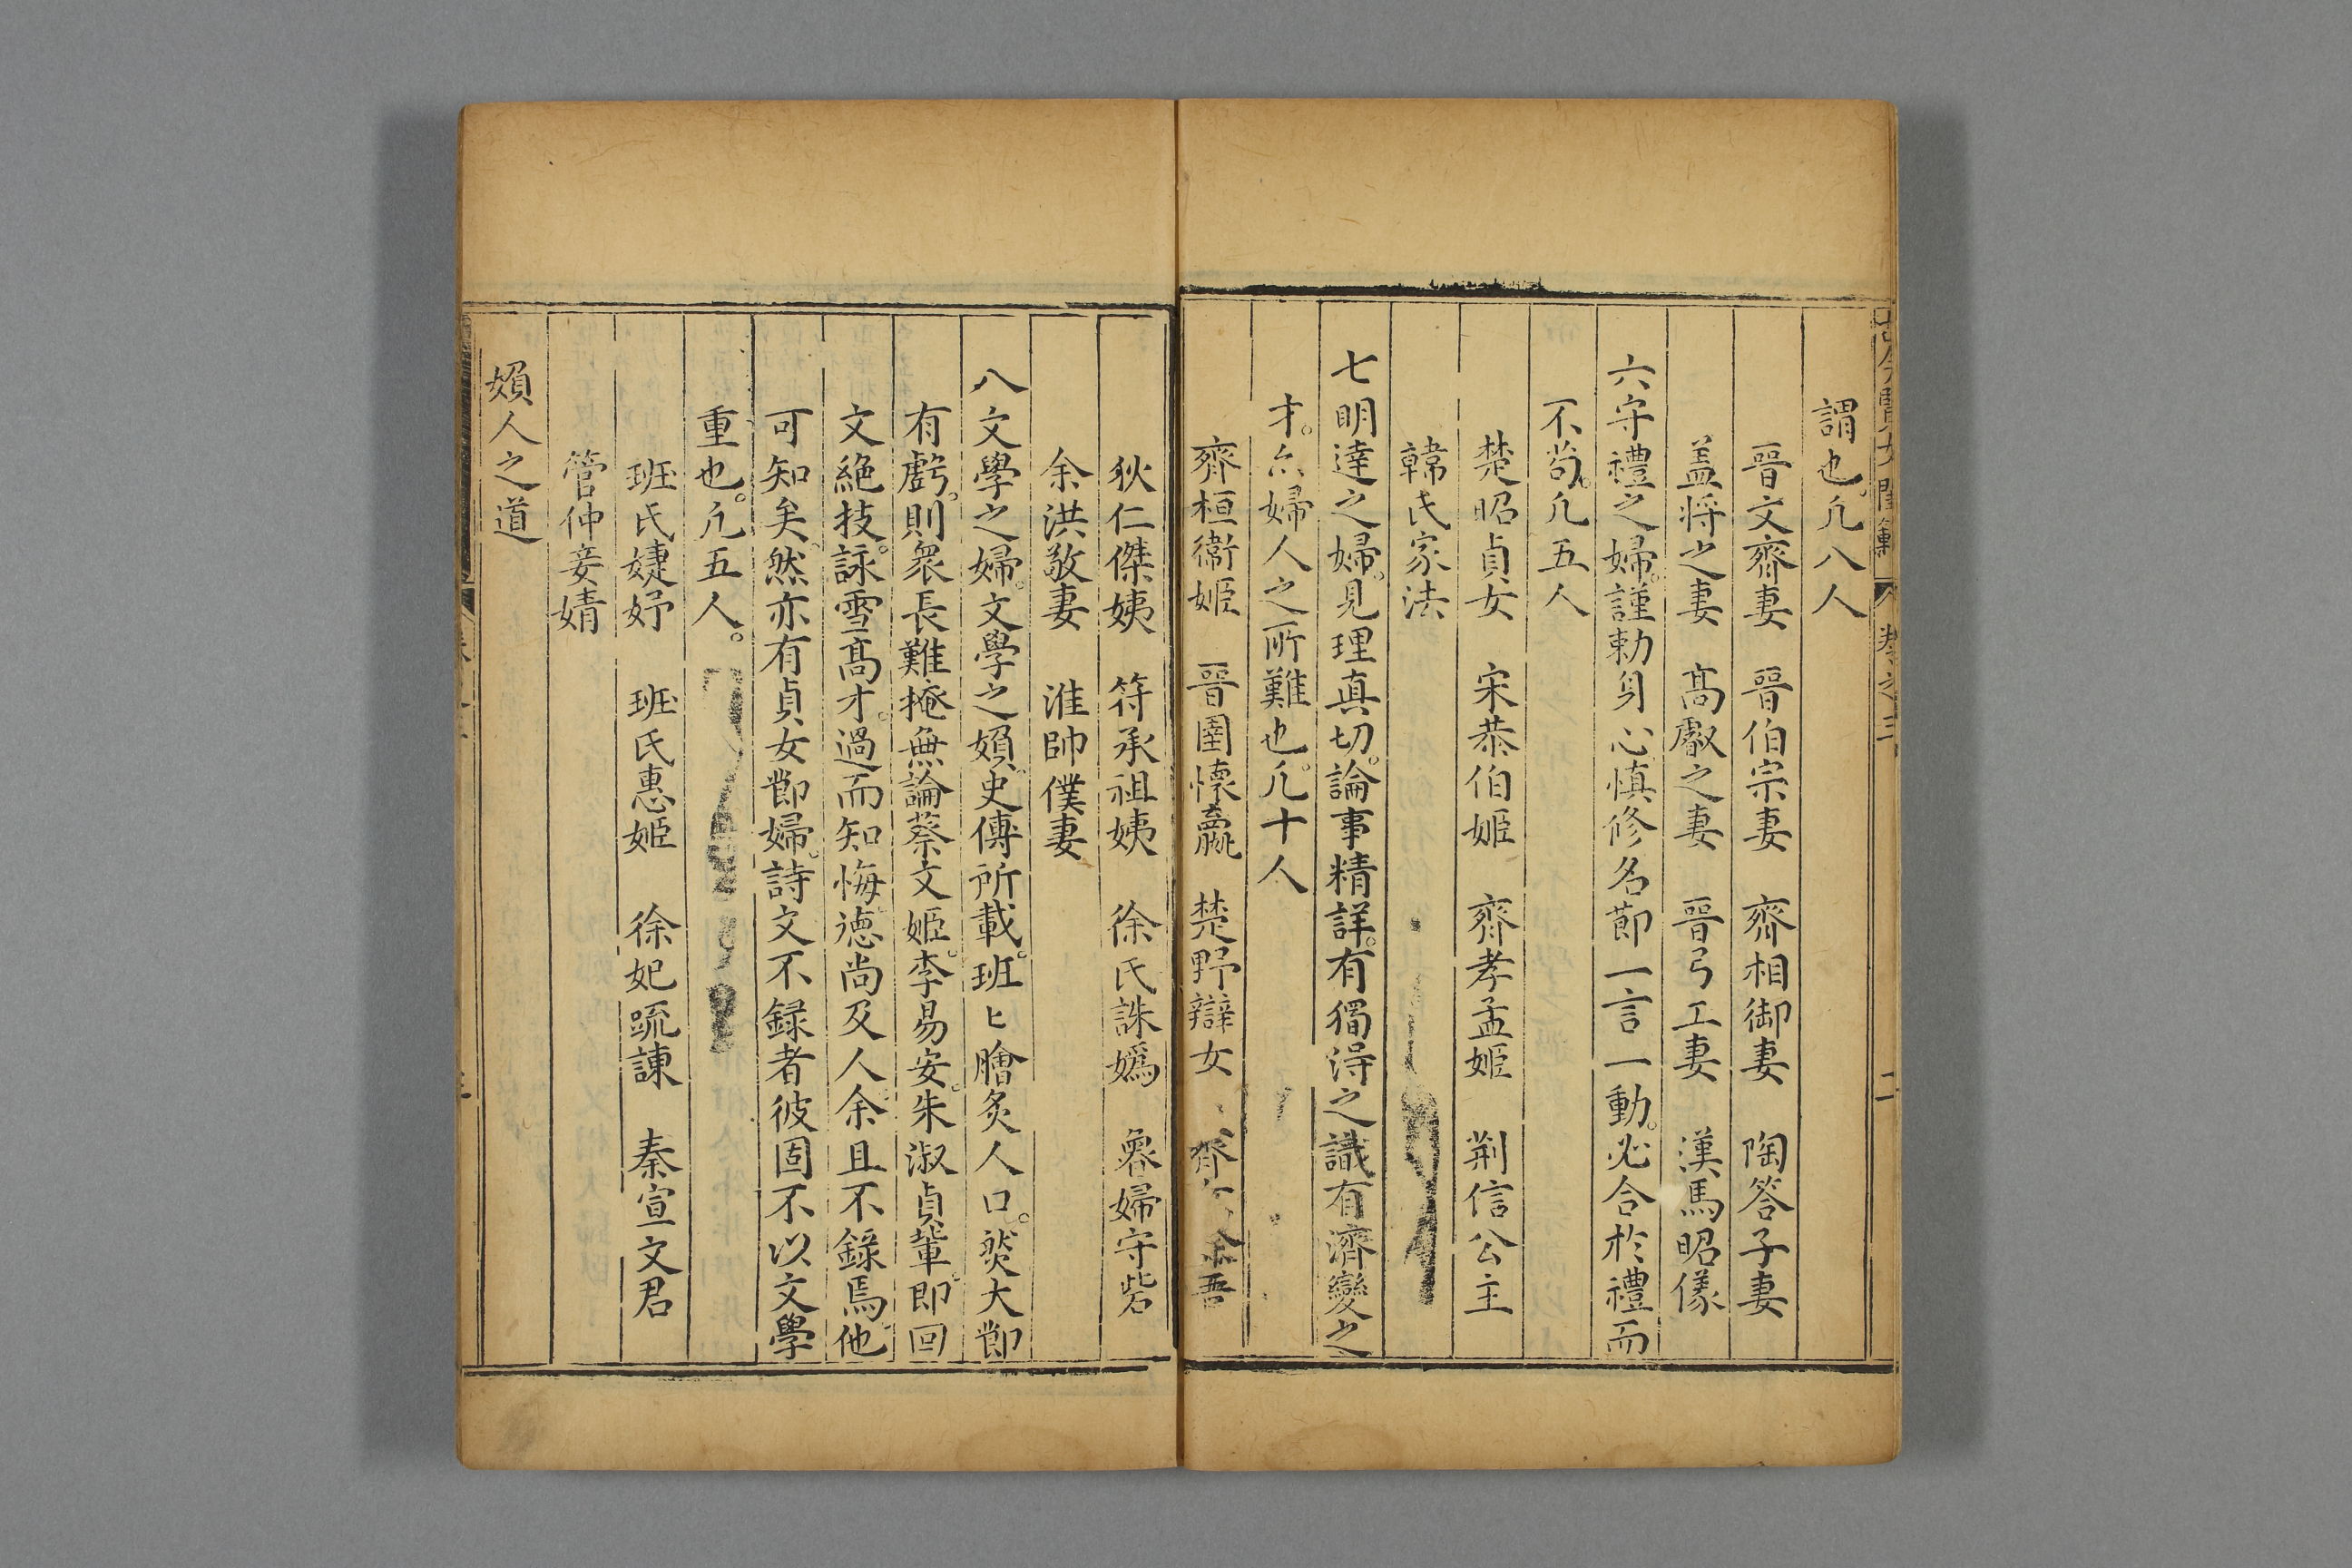 謂也。凢八人
晉文齊妻　晉伯宗妻　齊相御妻　陶答子妻
盖將之妻　髙叡之妻　晉弓工妻　漢馬昭儀
六守禮之婦。謹勅身心。慎修名節。一言一動。必合於禮而
不苟。凢五人
楚昭貞女　宋恭伯姬　齊孝孟姬　荆信公主
韓氏家法
七明達之婦。見理真切。論事精詳。有獨淂之識。有濟變之
才。六婦人之所難也。凢十人
齊桓衞姬　晉圉懷嬴　楚野辯女　齊 徐吾
狄仁傑姨　符承祖姨　徐氏誅嬀　魯婦守砦
余洪敬妻　淮帥僕妻
八文學之婦。文學之婦。史傳所載。班匕膾炙人口。然大節
有虧。則衆長難掩。無論蔡文姬。李易安。朱淑貞輩。即回
文絶技。詠雪髙才。過而知悔。德尚及人。余且不錄焉。他
可知矣。然亦有貞女節婦。詩文不録者。彼固不以文學
重也。凢五人。
班氏婕妤　班氏惠姬　徐妃疏諫　秦宣文君
管仲妾婧
婦人之道
古今賢女閨範　卷之三　二